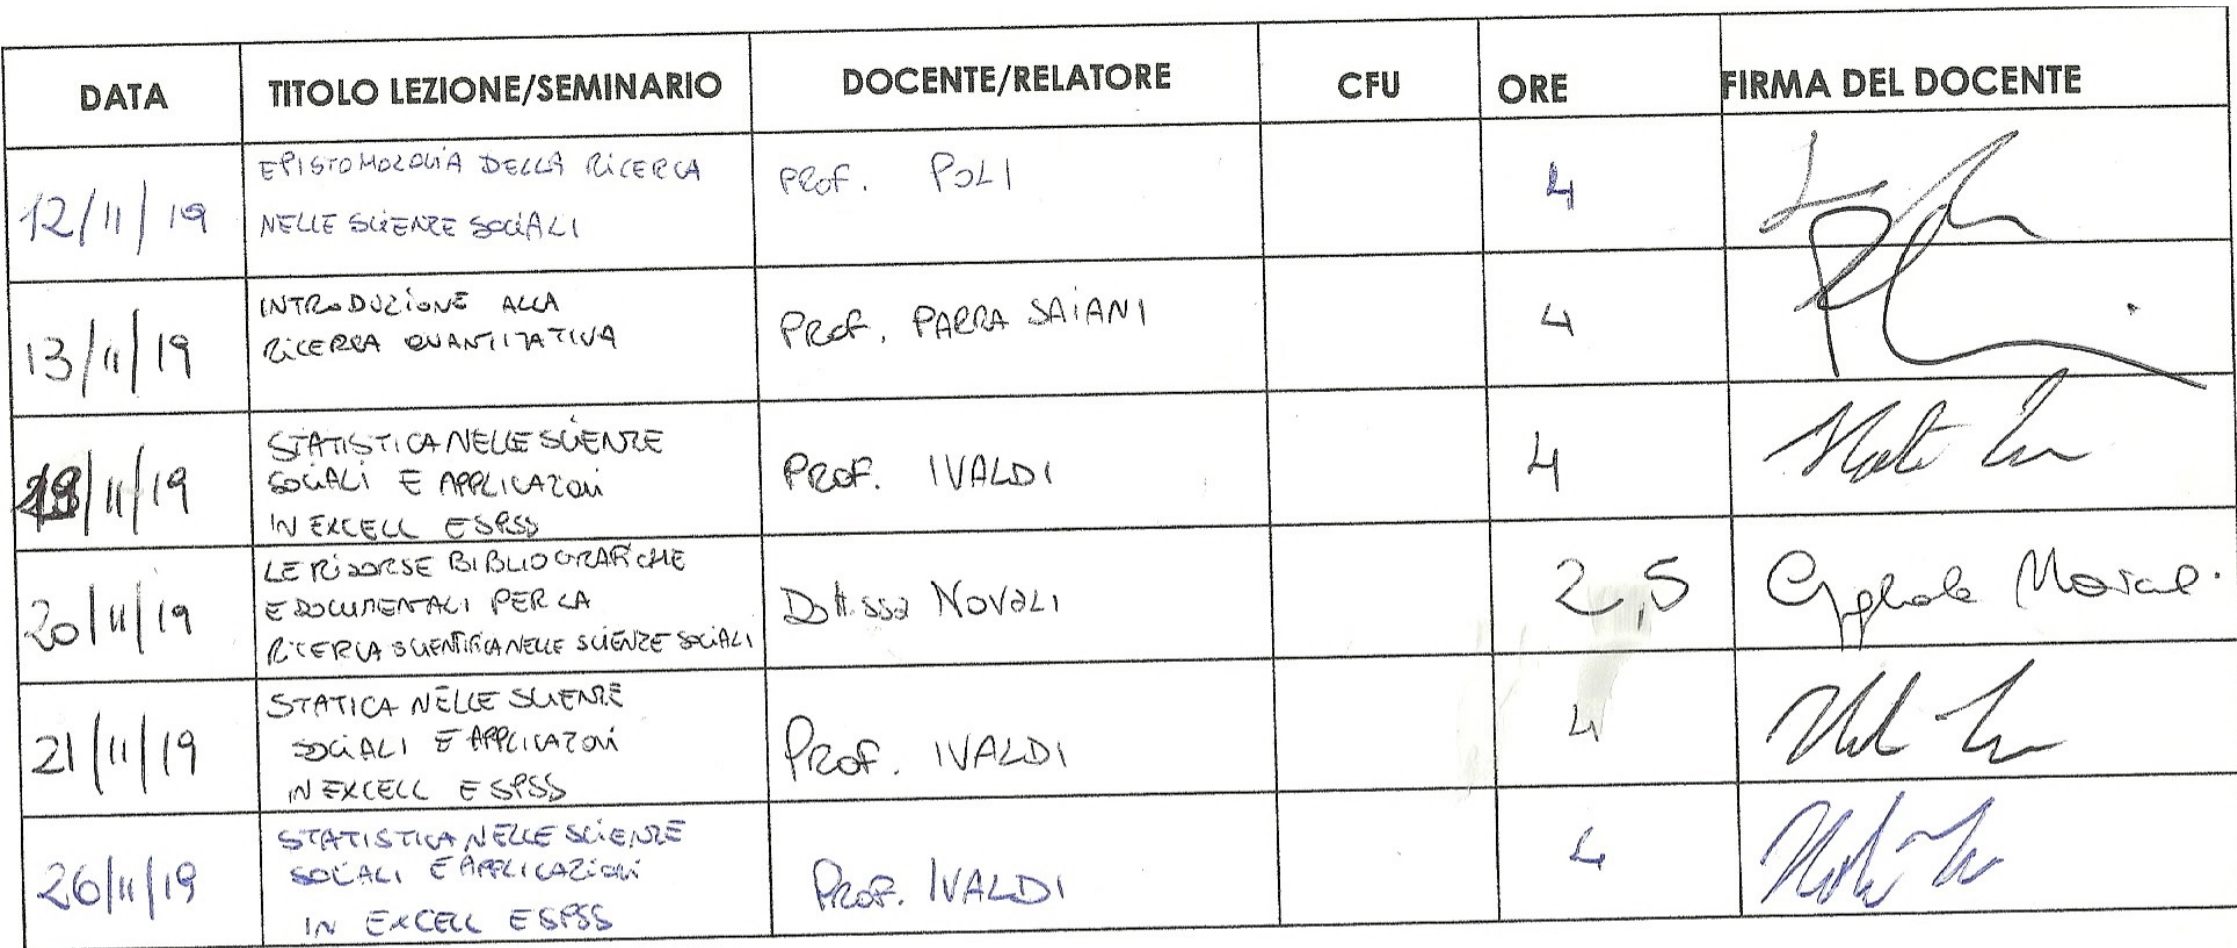 DATA TITOLO LEZIONE/SEMINARIO DOCENTE/RELATORE CFU ORE FIRMA DEL DOCENTE
12/11/19
EPISTOMOLOGIA DELLA RICERCA
NELLE SCIENZE SOCIALI
PROF. POLI
4
13/11/19
INTRODUZIONE ALLA
RICERCA QUANTITATIVA
PROF. PARRA SAIANI
4
/11/19
STATISTICA NELLE SCIENZE
SOCIALI E APPLICAZONI
IN EXCELL E SPSS
PROF. IVALDI
4
20/11/19
LE RISORSE BIBLIOGRAFICHE
E DOCUMENTALI PER LA
RICERCA SCIENTIFICA NELLE SCIENZE SOCIALI
Dott.ssa NOVALI
2,5
21/11/19
STATICA NELLE SCIENZE
SOCIALI E APPLICAZONI
IN EXCELL E SPSS
PROF. IVALDI
4
26/11/19
STATISTICA NELLE SCIENZE
SOCIALI E APPLICAZIONI
IN EXCELL E SPSS
PROF. IVALDI
4